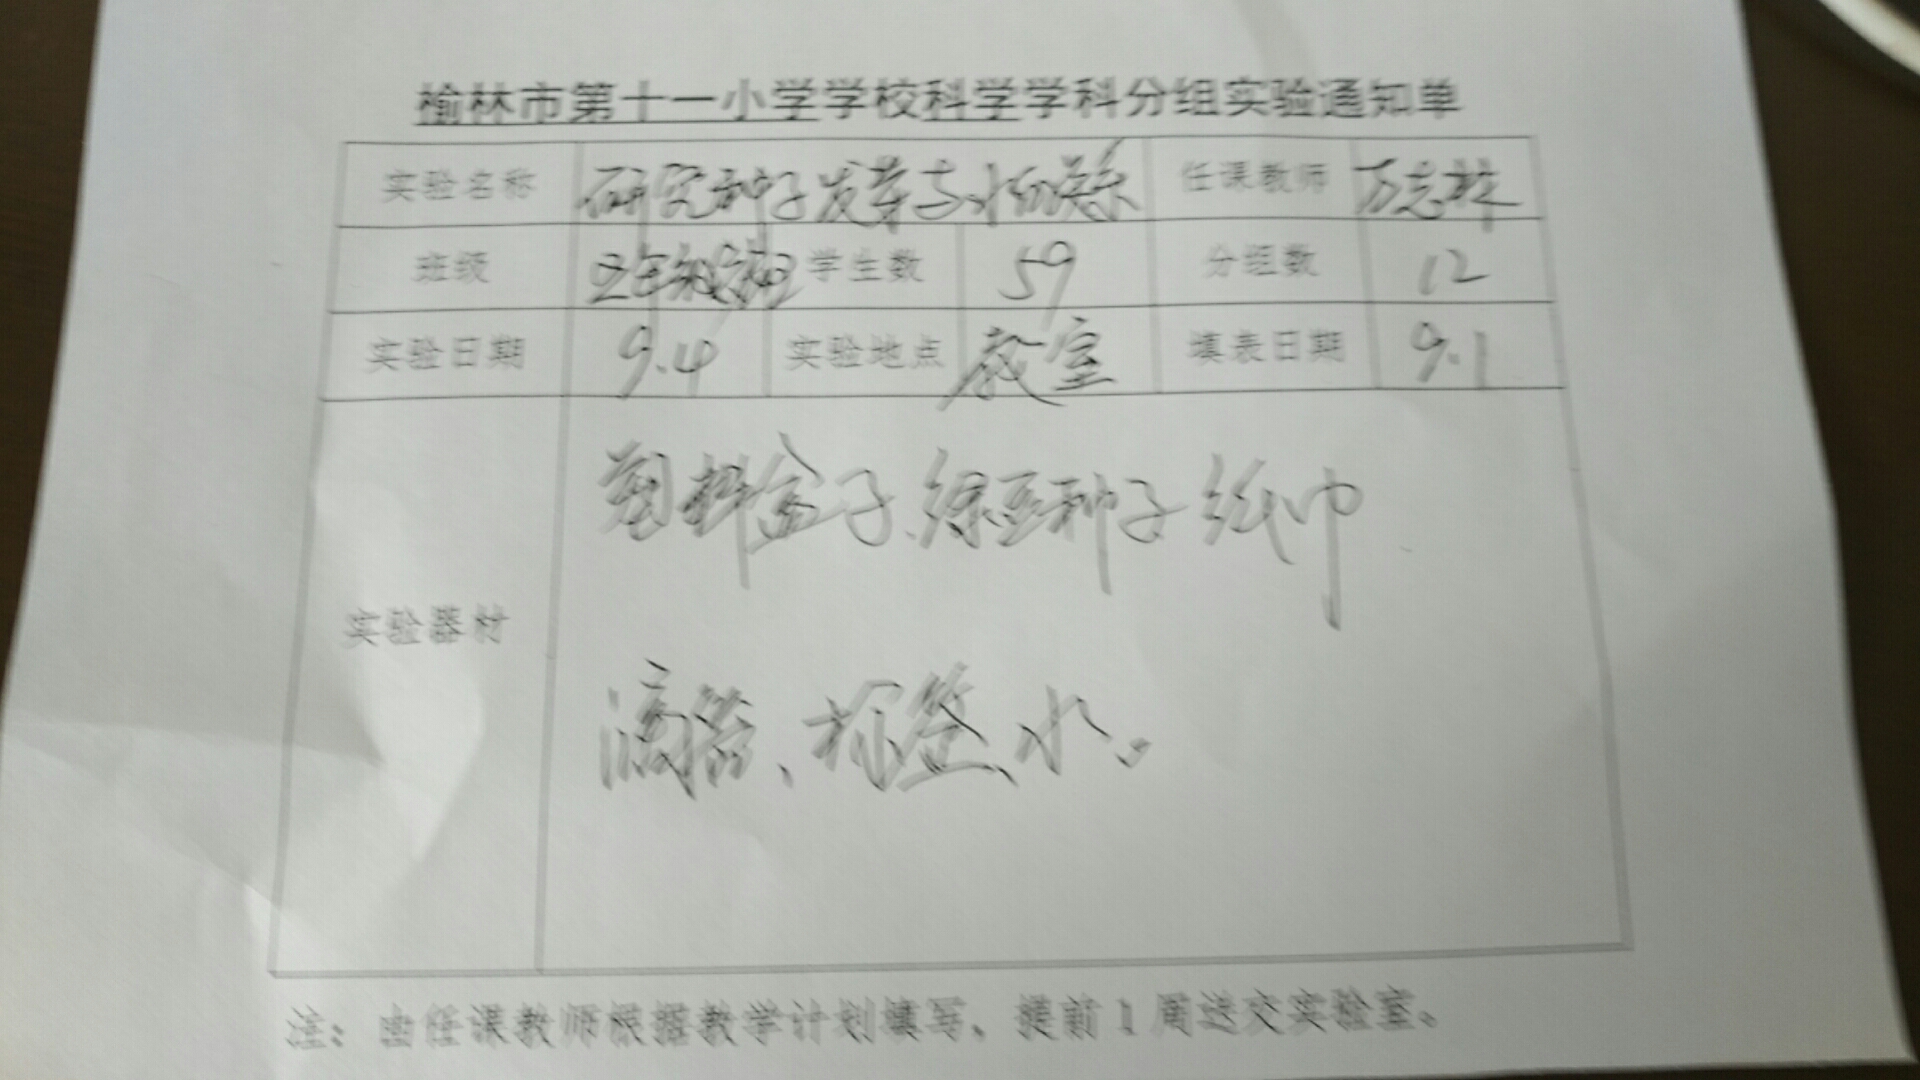 榆林市第十一小学学校科学学科分组实验通知单
实验名称 研究种子发芽与水的关系 任课教师 万志林
班级 五年级 学生数 59 分组数 12
实验日期 9.4 实验地点 教室 填表日期 9.1
塑料盒子、绿豆种子 纸巾
实验器材
滴管、标签、水。
注：由任课教师根据教学计划填写，提前1周送交实验室。